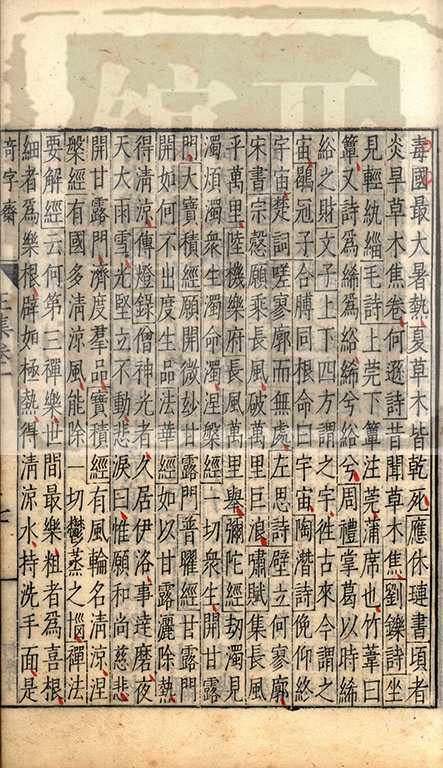 毒國最大暑熱夏草木皆乾死應休璉書頃者
炎旱草木焦卷何遜詩昔聞草木焦劉鑠詩坐
見輕紈緇毛詩上莞下簟注莞蒲席也竹葦曰
簟又詩為絺為綌絺兮綌兮周禮掌葛以時絺
綌之財文子上下四方謂之宇徃古來今謂之
宙鶡冠子合膊同根命曰宇宙陶潛詩俛仰終
宇宙楚詞嗟寥廓而無處左思詩壁立何寥廓
宋書宗慤願乘長風破萬里巨浪嘯賦集長風
乎萬里陸機樂府長風萬里舉彌陀經刼濁見
濁煩濁衆生濁命濁涅槃經一切衆生開甘露
門大寶積經願開微妙甘露門普曜經甘露門
開如何不出度生品法華經如以甘露灑除熱
得清涼傳燈錄僧神光者久居伊洛事達磨夜
天大雨雪光堅立不動悲淚曰惟願和尚慈悲
開甘露門濟度羣品寶積經有風輪名清涼涅
槃經有國多清涼風能除一切鬱蒸之惱禪法
要解經云何第三禪樂世間最樂粗者為喜根
細者為樂根辟如極熱得清涼水持洗手面是
奇字齋